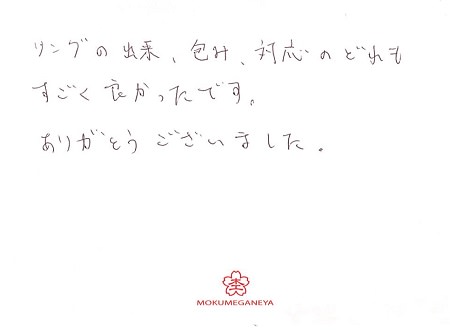 リングの出来、包み、対応のどれも
すごく良かったです。
ありがとうございました。
MOKUMEGANEYA